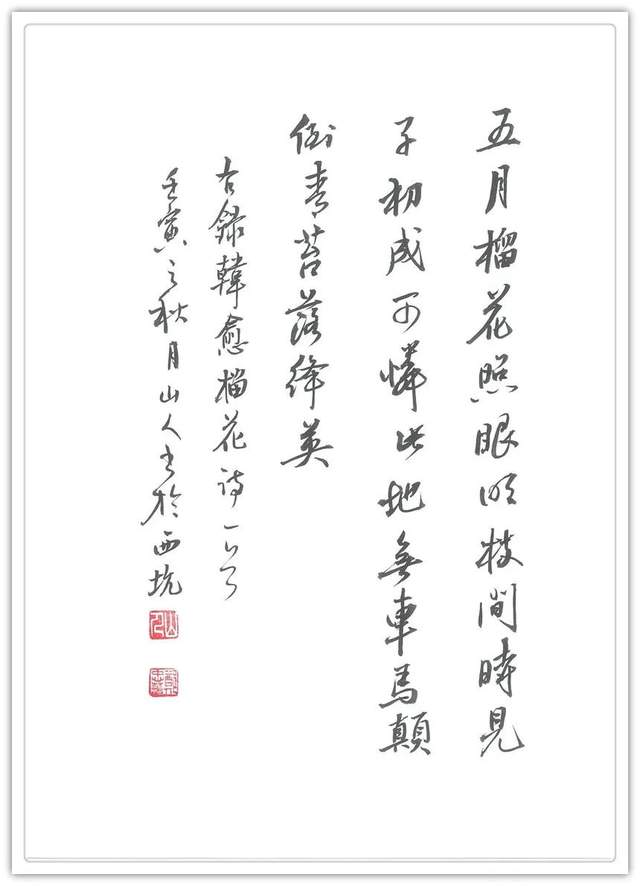 五月榴花照眼明枝間時見
子初成可憐此地無車馬顛
倒青苔落絳英
右錄韓愈榴花詩一首
壬寅之秋月山人書於西坑